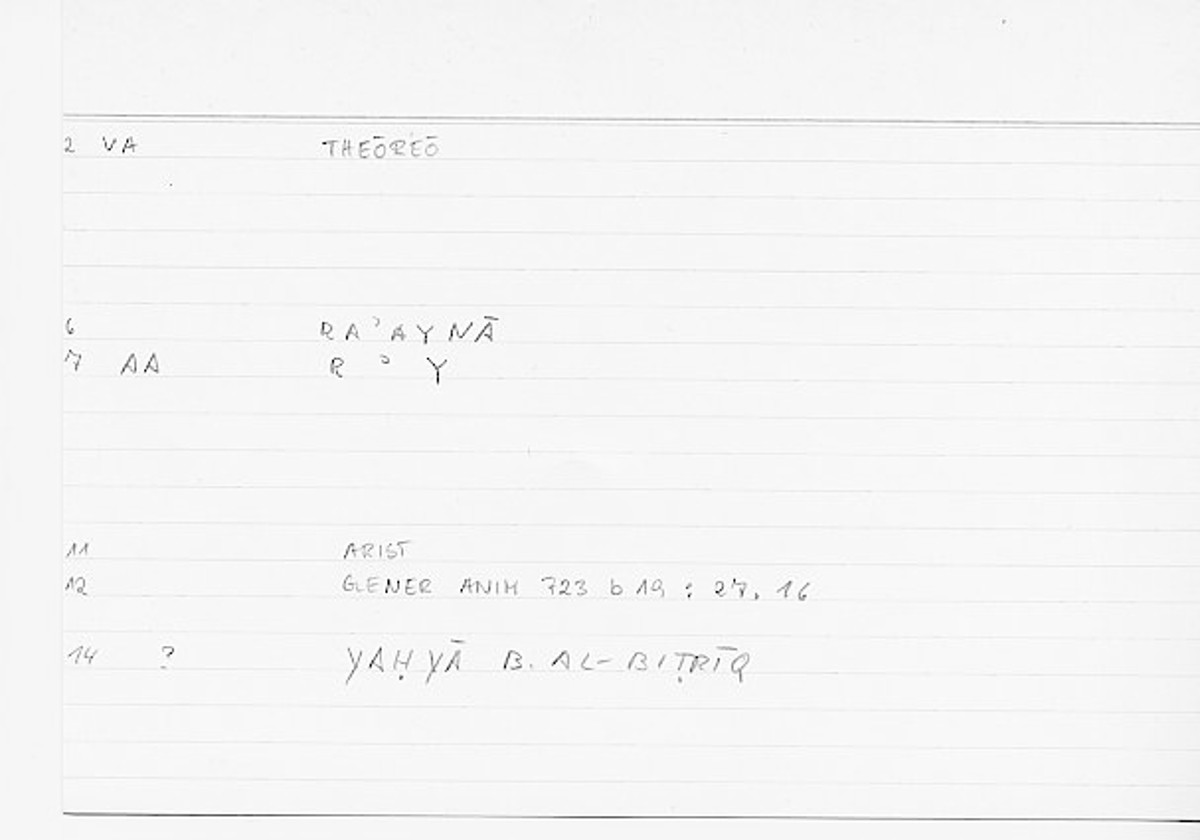 2 VA THEŌREŌ
6 RAʾAYNĀ
7 AA R ʾ Y
11 ARIST
12 GENER ANIM 723 b 19 : 27, 16
14 ? YAḤYĀ B. AL-BIṬRĪQ